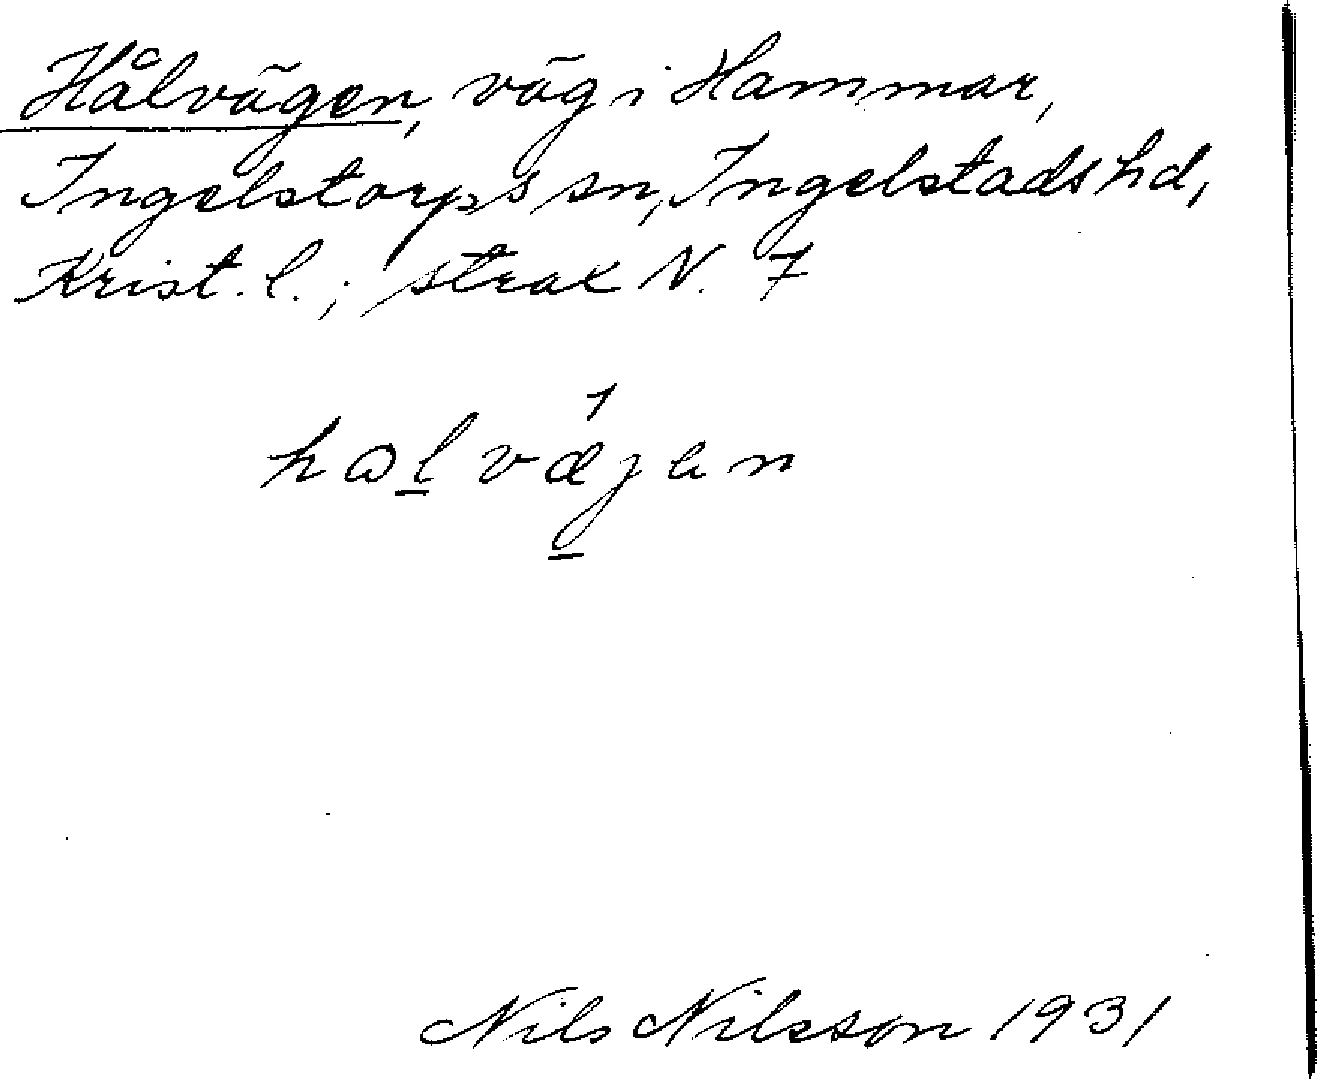 Hålvägen, väg i Hammar,
Ingelstorps sn, Ingelstads hd,
Krist. l.; strax N. 7
halvæjen
Nils Nilsson 1931